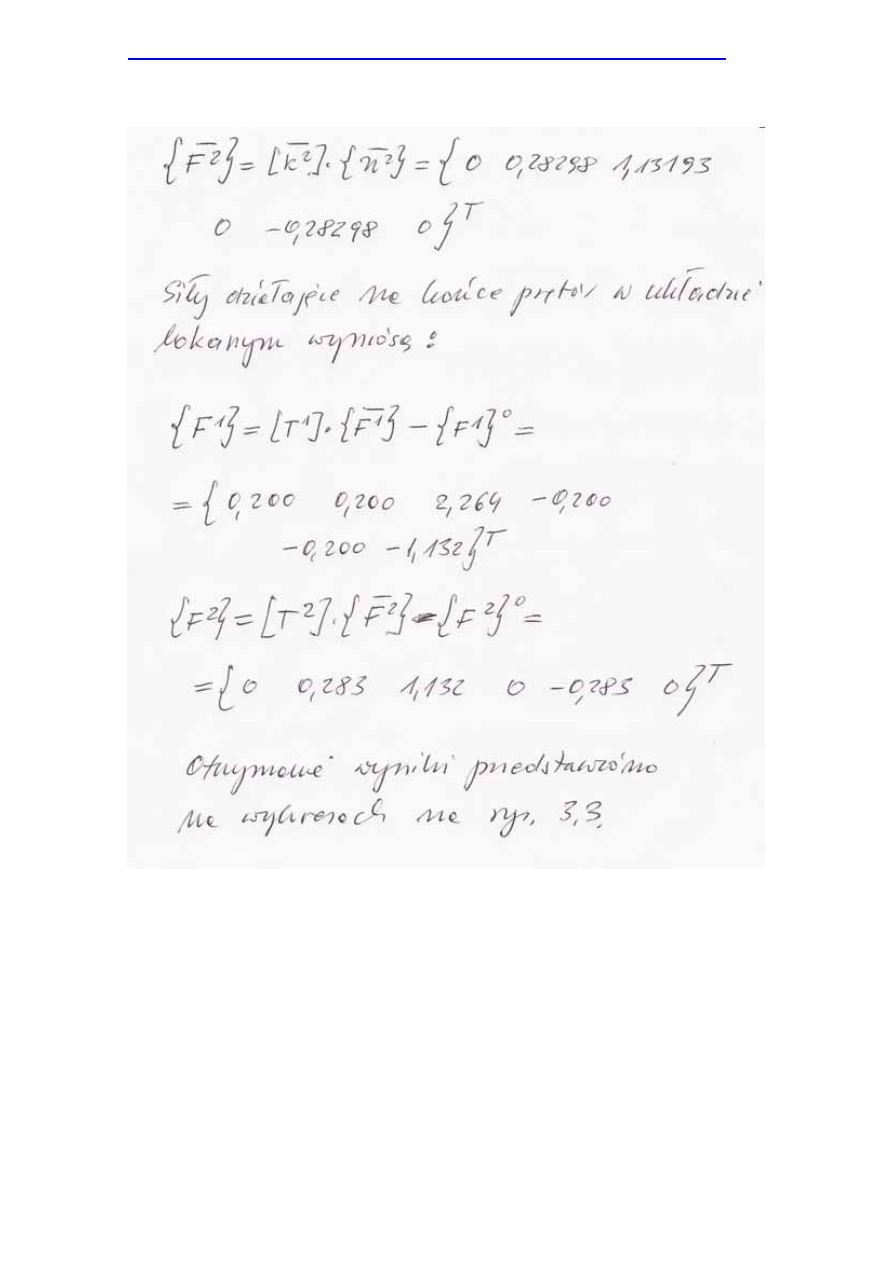 {F̅²} = [k̅²]·{n̅²} = { 0 0,28298 1,13193
0 -0,28298 0 }ᵀ
Siły działające na końce prętów w układzie
lokanym wyniosą :
{F¹} = [T¹]·{F̅¹} - {F¹}⁰ =
= { 0,200 0,200 2,264 -0,200
-0,200 -1,132 }ᵀ
{F²} = [T²]·{F̅²} - {F²}⁰ =
= { 0 0,283 1,132 0 -0,283 0 }ᵀ
Otrzymane wyniki przedstawiono
na wykresach na rys. 3,3.